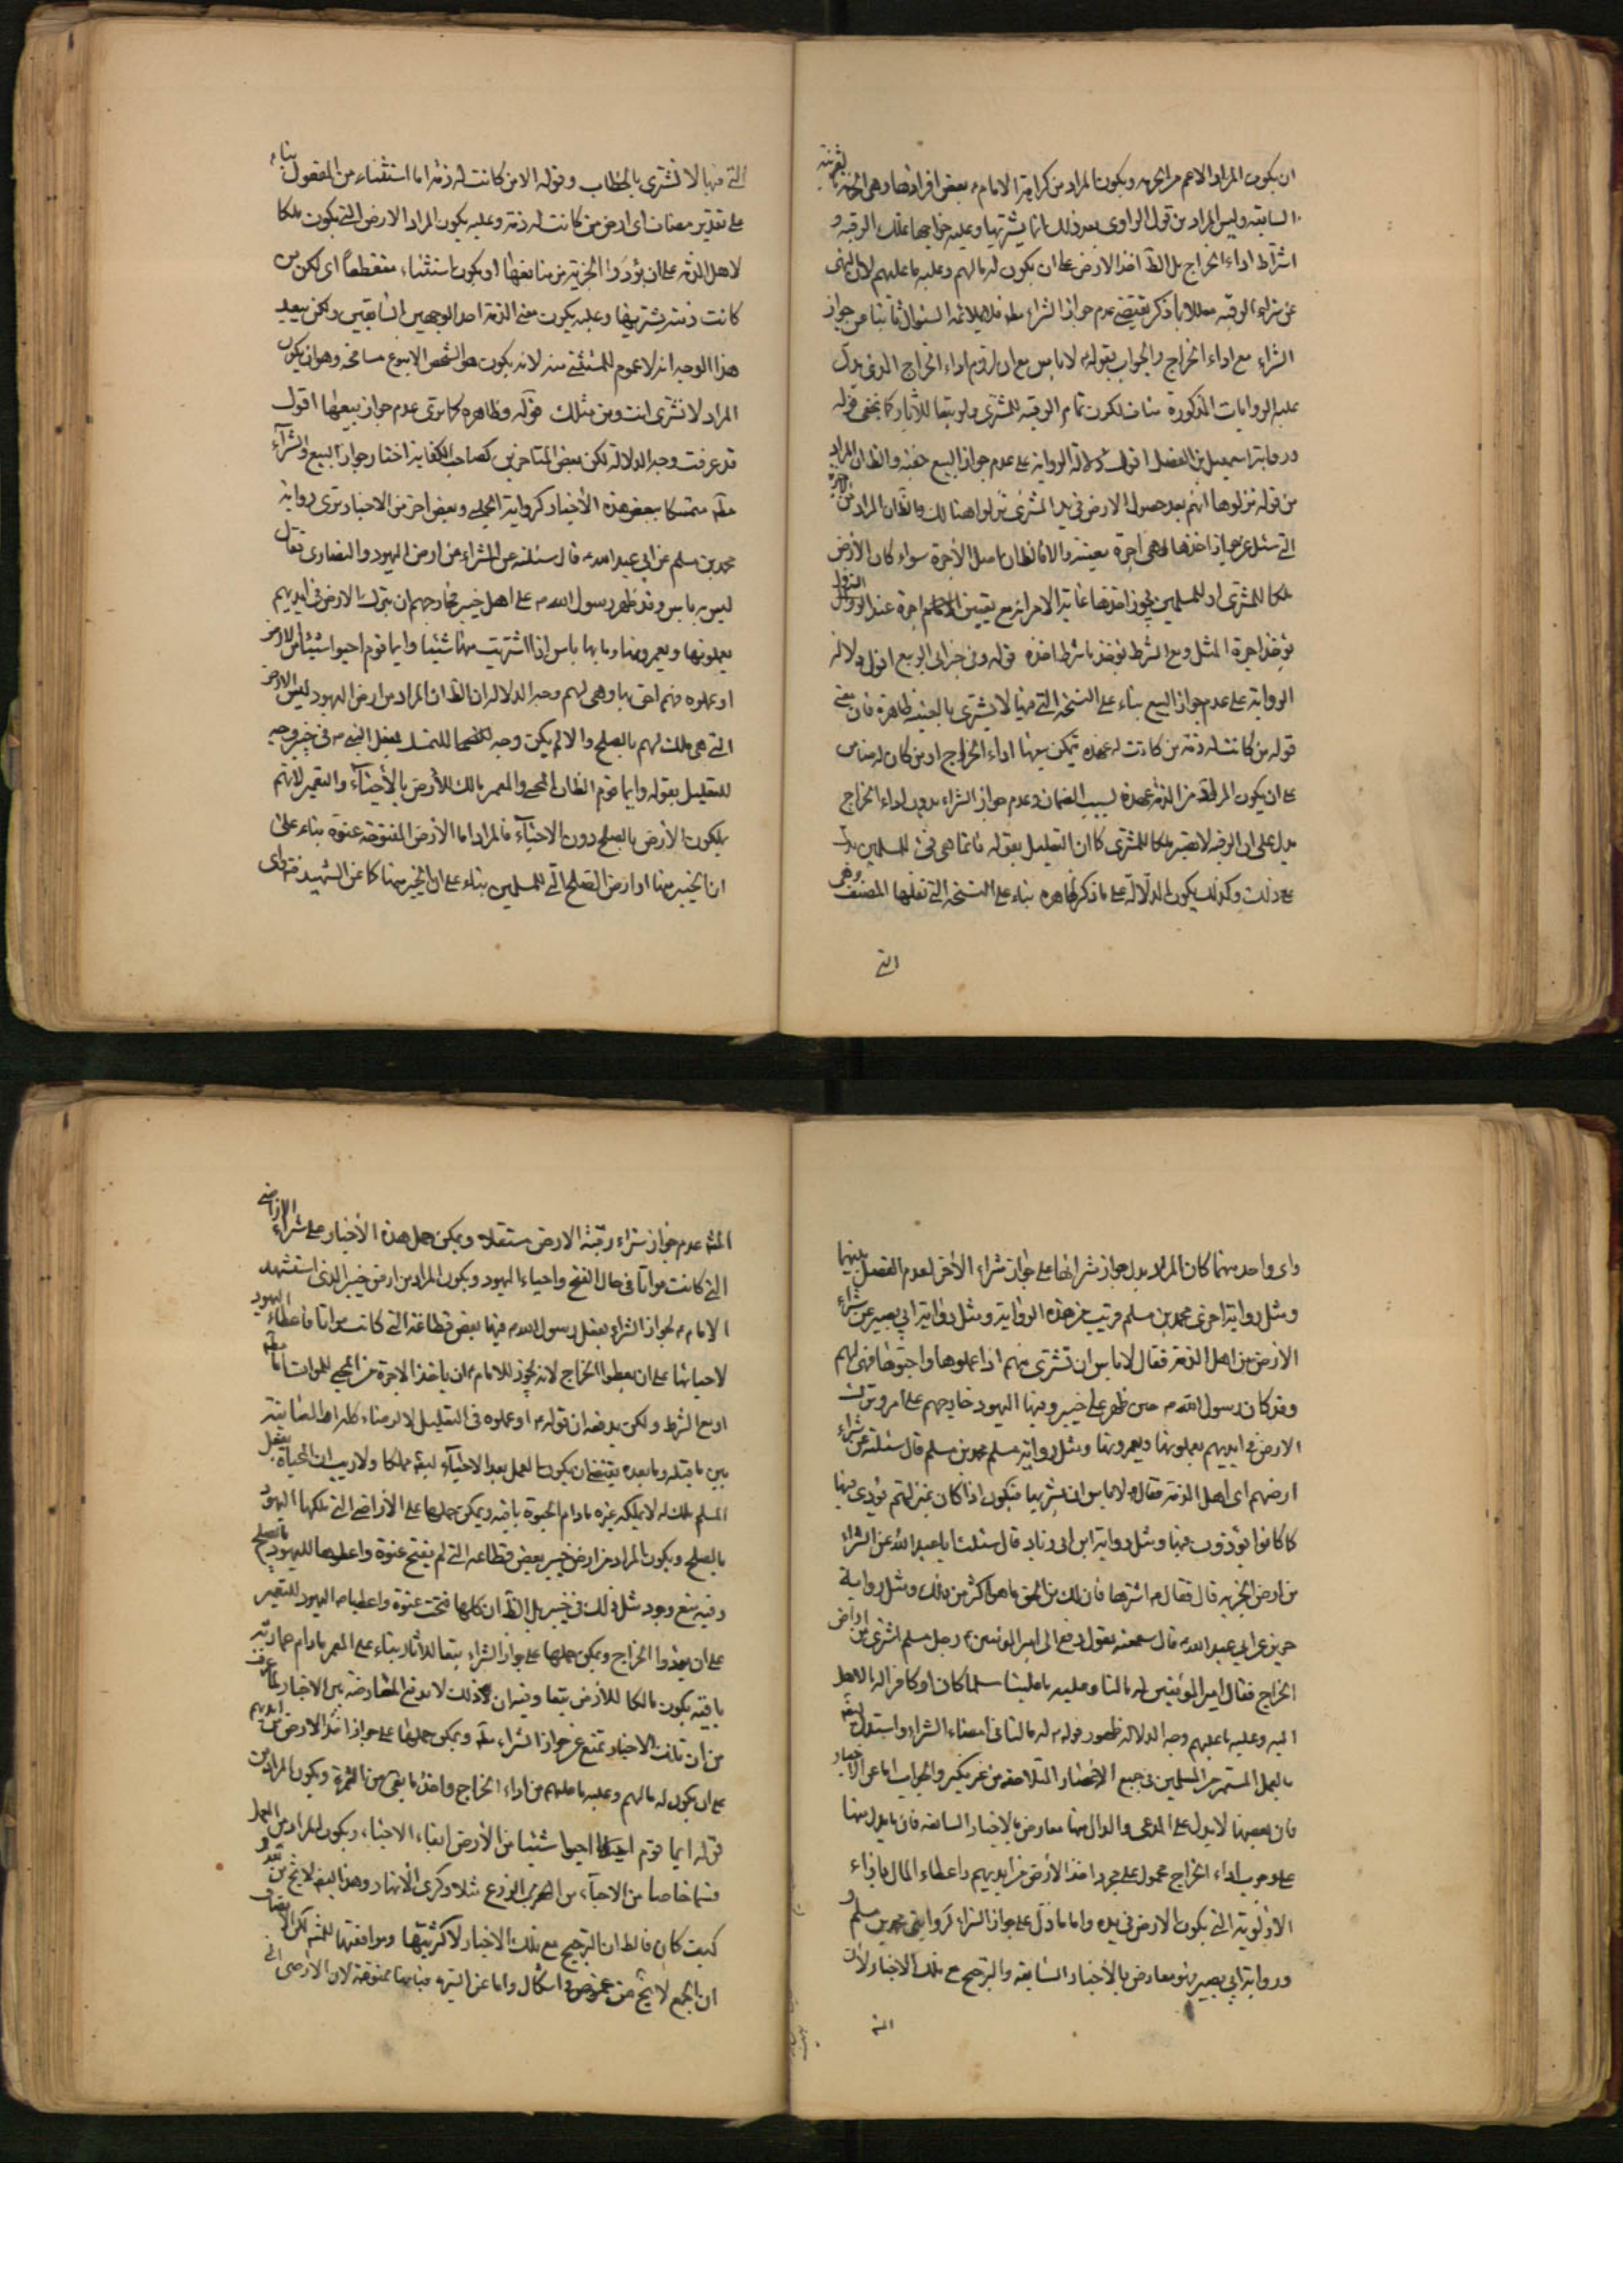 ان يكون المراد الاعم من الجزيه ويكون المراد من كراهة الامام ع بعض افرادها وهي الجزية بقرينة
السابقه وليس المراد من قول الراوي بعد ذلك انما يشتريها وعليه خراجها تملك الرقبه و
اشتراط اداء الخراج بل الظ اخذ الارض على ان يكون له مالهم وعليه ما عليهم لان النهي
عن شراء الرقبه معللا بما ذكر يقتضي عدم جواز الشراء مط فلا يلائمه السئوال ثانيا عن جواز
الشراء مع اداء الخراج والجواب بقوله ع لا باس مع ان لزوم اداء الخراج الذي يدل
عليه الروايات المذكورة مناف لكون تمام الرقبه للمشتري ولو تبعا للآثار كما يخفى قوله
ورواية اسمعيل بن الفضل اقول دلالة الرواية على عدم جواز البيع خفية والظ ان المراد
من قوله نزلوها انهم بعد حصول الارض في يد المشتري نزلوا هنالك والظ ان المراد من الاجرة
التي سئل عن جواز اخذها هي اجرة معينة والا فالظ ان اصل الأجرة سواء كان الأرض
ملكا للمشتري او للمسلمين يجوز اخذها غاية الامر انه مع تعيين اجرة عند النزول
يؤخذ اجرة المثل ومع الشرط يؤخذ ما شرط اخذه قوله وفي خبر ابي الربيع اقول دلالة
الرواية على عدم جواز البيع بناء على النسخة التي فيها لا يشترى بالغيبه ظاهرة فان معنى
قوله من كانت له ذمة من كانت له عهده يتمكن بها اداء الخراج او من كان له ضامن
على ان يكون المراد من الذمة عهدة بسبب الضمان وعدم جواز الشراء بدون اداء الخراج
يدل على ان الرقبه لا تصير ملكا للمشتري كما ان التعليل بقوله فانما هي فئ للمسلمين يدل
على ذلك وكذلك يكون الدلالة على ما ذكر ظاهره بناء على النسخة التي نقلها المصنف وهي
التي
التي فيها لا تشتري بالخطاب وقوله الا من كانت له ذمة اما استثناء من المفعول بناء
على تقدير مضاف اى ارض من كانت له ذمة وعليه يكون المراد الارض التي يكون ملكا
لاهل الذمة على ان يؤدوا الجزية من منافعها او يكون استثناء منقطعاً اى لكن من
كانت ذمته يشتريها وعليه يكون معنى الذمة احد الوجهين السابقين ولكن يبعد
هذا الوجه انه لا عموم للمستثنى منه لانه يكون هو الشخص الا بنوع مسامحة وهو ان يكون
المراد لا تشتري انت ومن مثلك قوله وظاهره كما ترى عدم جواز بيعها اقول
قد عرفت وجه الدلالة لكن بعض المتاخرين كصاحب الكفاية اختار جواز البيع والشراء
مط متمسكا ببعض هذه الأخبار كرواية الحلبي وبعض اخر من الاخبار ترى رواية
محمد بن مسلم عن ابي عبد الله ع قال سئلته عن الشراء من ارض اليهود والنصارى فقال
ليس به باس وقد ظهر رسول الله ص على اهل خيبر فخارجهم ان يترك الارض في ايديهم
يعملونها ويعمرونها وما بها باس اذا اشتريت منها شيئا وايما قوم احيوا شيئا من الارض
او عملوه فهم احق بها وهي لهم وجه الدلالة ان الظ ان المراد من ارض اليهود ليس الارض
التي هي ملك لهم بالصلح والا لم يكن وجه للتمسك بفعل النبي ص في خيبر وجه
للتعليل بقوله وايما قوم الظ ان المحيي والمعمر مالك للأرض بالأحياء والتعمير لانهم
يملكون الأرض بالصلح دون الاحياء فالمراد اما الأرض المفتوحة عنوة بناء على
ان الخيبر منها او ارض الصلح التي للمسلمين بناء على ان الخيبر منها كما عن الشهيد فتراى
واى واحد منهما كان المراد يدل جواز شرائها على جواز شراء الأخر لعدم الفصل بينهما
ومثل رواية اخرى محمد بن مسلم قريب من هذه الرواية ومثل رواية ابي بصير عن شراء
الارض من اهل الذمة فقال لا باس ان تشتري منهم اذا عملوها واحيوها فهي لهم
وقد كان رسول الله ص حين ظهر على خيبر وفيها اليهود خارجهم على امر وترك
الارض في ايديهم يعملونها ويعمرونها ومثل رواية مسلم محمد بن مسلم قال سئلته عن شراء
ارضهم اى اهل الذمة فقال لا باس ان يشتريها فتكون اذا كان بمنزلتهم تؤدي فيها
كما كانوا يؤدون فيها ومثل رواية ابن ابي زياد قال سئلت ابا عبد الله عن الشراء
من ارض الجزيه قال فقال ع اشترها فان لك من الحق ما هو اكثر من ذلك ومثل رواية
حريز عن ابي عبد الله ع قال سمعته يقول رفع الى امير المؤمنين ع رجل مسلم اشترى من اراضي
الخراج فقال امير المؤمنين له مالنا وعليه ما علينا مسلما كان او كافرا له ما لاهل
الله وعليه ما عليهم وجه الدلالة ظهور قوله ع له مالنا في امضاء الشراء واستدل ايضا
بالعمل المستمر من المسلمين في جميع الاعصار المتلاحقه من غير نكير والجواب اما عن الاخبار
فان بعضها لا يدل على المدعى والدال منها معارض بالاخبار السابقه فان ما يدل منها
على وجوب اداء الخراج محمول على مجرد اخذ الأرض من ايديهم واعطاء المال بازاء
الاولوية التي يكون الارض في يده واما ما دل على جواز الشراء كروايتى محمد بن مسلم و
ورواية ابي بصير فهو معارض بالأخبار السابقه والترجيح مع تلك الاخبار لان
المش
المش عدم جواز شراء رقبة الارض مستقلا ويمكن حمل هذه الأخبار على شراء الاراضي
التي كانت مواتا في حال الفتح واحياء اليهود ويكون المراد من ارض خيبر الذي استشهد
الامام ع لجواز الشراء بفعل رسول الله ص فيها بعض قطاعه التي كانت مواتا فاعطاء اليهود
لاحيائها على ان يعطوا الخراج لانه يجوز للامام ع ان ياخذ الاجرة من المحيي للموات اما مط
او مع الشرط ولكن يدفعه ان قوله ع او عملوه في التعليل
بين ما قبله وما بعده يقتضي ان يكون العمل بعد الاحياء ايضا مملكا ولا ريب ان المحياة بفعل
المسلم ملك له لا يملكه غيره ما دام الحيوة باقيه ويمكن حملها على الأراضي التي ملكها اليهود
بالصلح ويكون المراد من ارض خيبر بعض قطاعه التي لم يفتح عنوة واعطوها لليهود بالصلح
وفيه منع وجود مثل ذلك في خيبر بل الظ ان كلها فتحت عنوة واعطيها اليهود للتعمير
على ان يؤدوا الخراج ويمكن حملها على جواز الشراء تبعا للاثار بناء على المعمر ما دام عمارته
باقية يكون مالكا للأرض تبعا وفيه ان ذلك لا يدفع المعارضه بين الاخبار لما عرفت
من ان تلك الاخبار تمنع عن جواز الشراء مط ويمكن حملها على جواز اخذ الارض من ايديهم
على ان يكون له مالهم وعليه ما عليهم من اداء الخراج واخذ ما بقي من الثمرة ويكون المراد من
قوله ايما قوم احيوا شيئا من الأرض ابقاء الاحياء ويكون المراد من العمل
قسما خاصا من الاحياء من الزرع مثلا وكرى الأنهار وهذا ايضا لا يخ من بعد و
كيف كان فالظ ان الترجيح مع تلك الاخبار لاكثريتها وموافقتها للمش لكن الانصاف
ان الجمع لا يخ من غموض واشكال واما عن السيره فبانها ممنوعة لان الاراضي التي